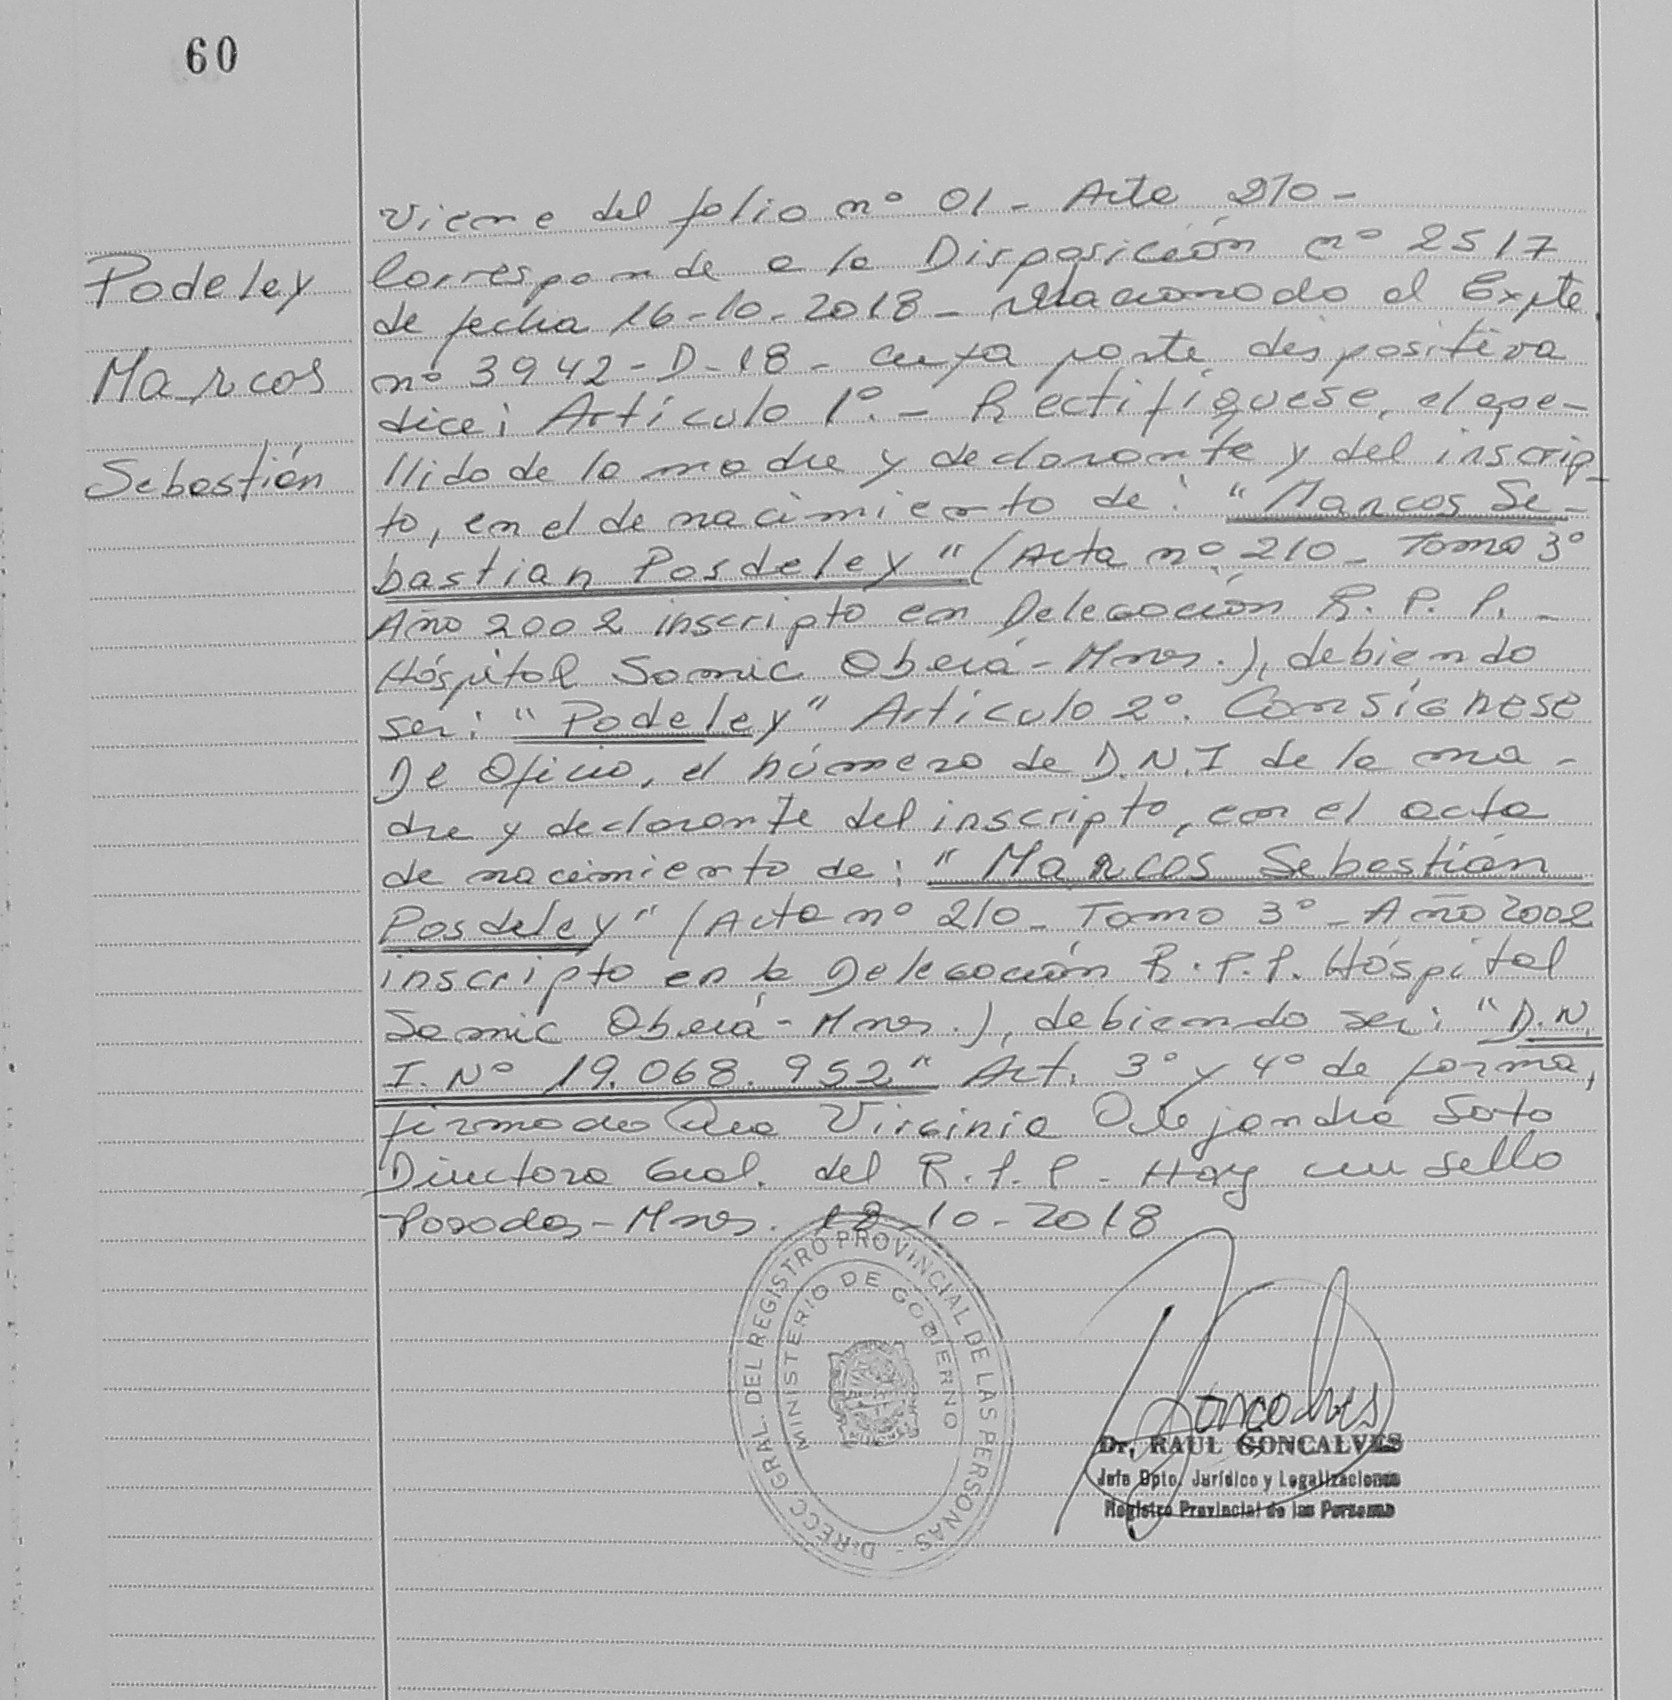 60
Podeley
Marcos
Sebastián
Viene del folio nº 01 - Acta 210 -
Corresponde a la Disposición nº 2517
de fecha 16-10-2018 - relacionado el Expte.
nº 3942-D-18 - cuya parte dispositiva
dice: Artículo 1º. - Rectifíquese, el ape-
llido de la madre y declarante y del inscrip-
to, en el de nacimiento de: "Marcos Se-
bastian Posdeley" (Acta nº 210 - Tomo 3º
Año 2002 inscripto en Delegación R. P. P. -
Hóspital Samic Oberá - Mnes.), debiendo
ser: "Podeley" Artículo 2º. Consígnese
De Oficio, el número de D.N.I de la ma-
dre y declarante del inscripto, en el acta
de nacimiento de: "Marcos Sebastián
Posdeley" (Acta nº 210 - Tomo 3º - Año 2002
inscripto en la Delegación R.P.P. Hóspital
Samic Oberá - Mnes.), debiendo ser: "D.N.
I. Nº 19.068.952" Art. 3º y 4º de forma,
firmado Virginia Alejandra Soto
Directora Gral. del R.P.P - Hay un sello
Posadas - Mnes. 18-10-2018
DIRECC. GRAL. DEL REGISTRO PROVINCIAL DE LAS PERSONAS -
MINISTERIO DE GOBIERNO
Goncalves
Dr. RAUL GONCALVES
Jefe Dpto. Jurídico y Legalizaciones
Registro Provincial de las Personas